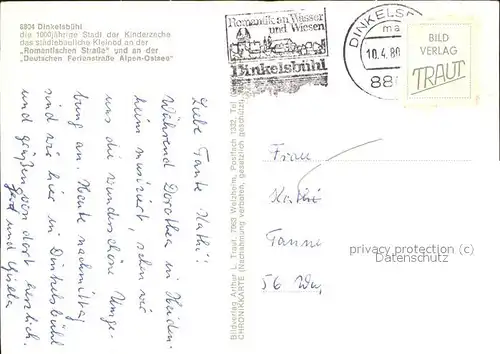 8804 Dinkelsbühl
die 1000jährige Stadt der Kinderzeche
das städtebauliche Kleinod an der
„Romantischen Straße" und an der
„Deutschen Ferienstraße Alpen-Ostsee"
Romantik an Wasser
und Wiesen
Dinkelsbühl
DINKELSB
10.4.80
880
BILD
VERLAG
TRAUT
Liebe Tante Kathi!
Während Dorothea in Heiden-
heim musiziert, sehen wir
uns die wunderschöne Umge-
bung an. Heute nachmittag
sind wir hier in Dinkelsbühl
und grüßen von dort herzlich.
Gerd und Gisela
Bildverlag Arthur L. Traut, 7063 Welzheim, Postfach 1332, Tel
CHRONIKKARTE (Nachahmung verboten, gesetzlich geschützt)
Frau
Kathi
Tanne
56
privacy protection
Datenschutz